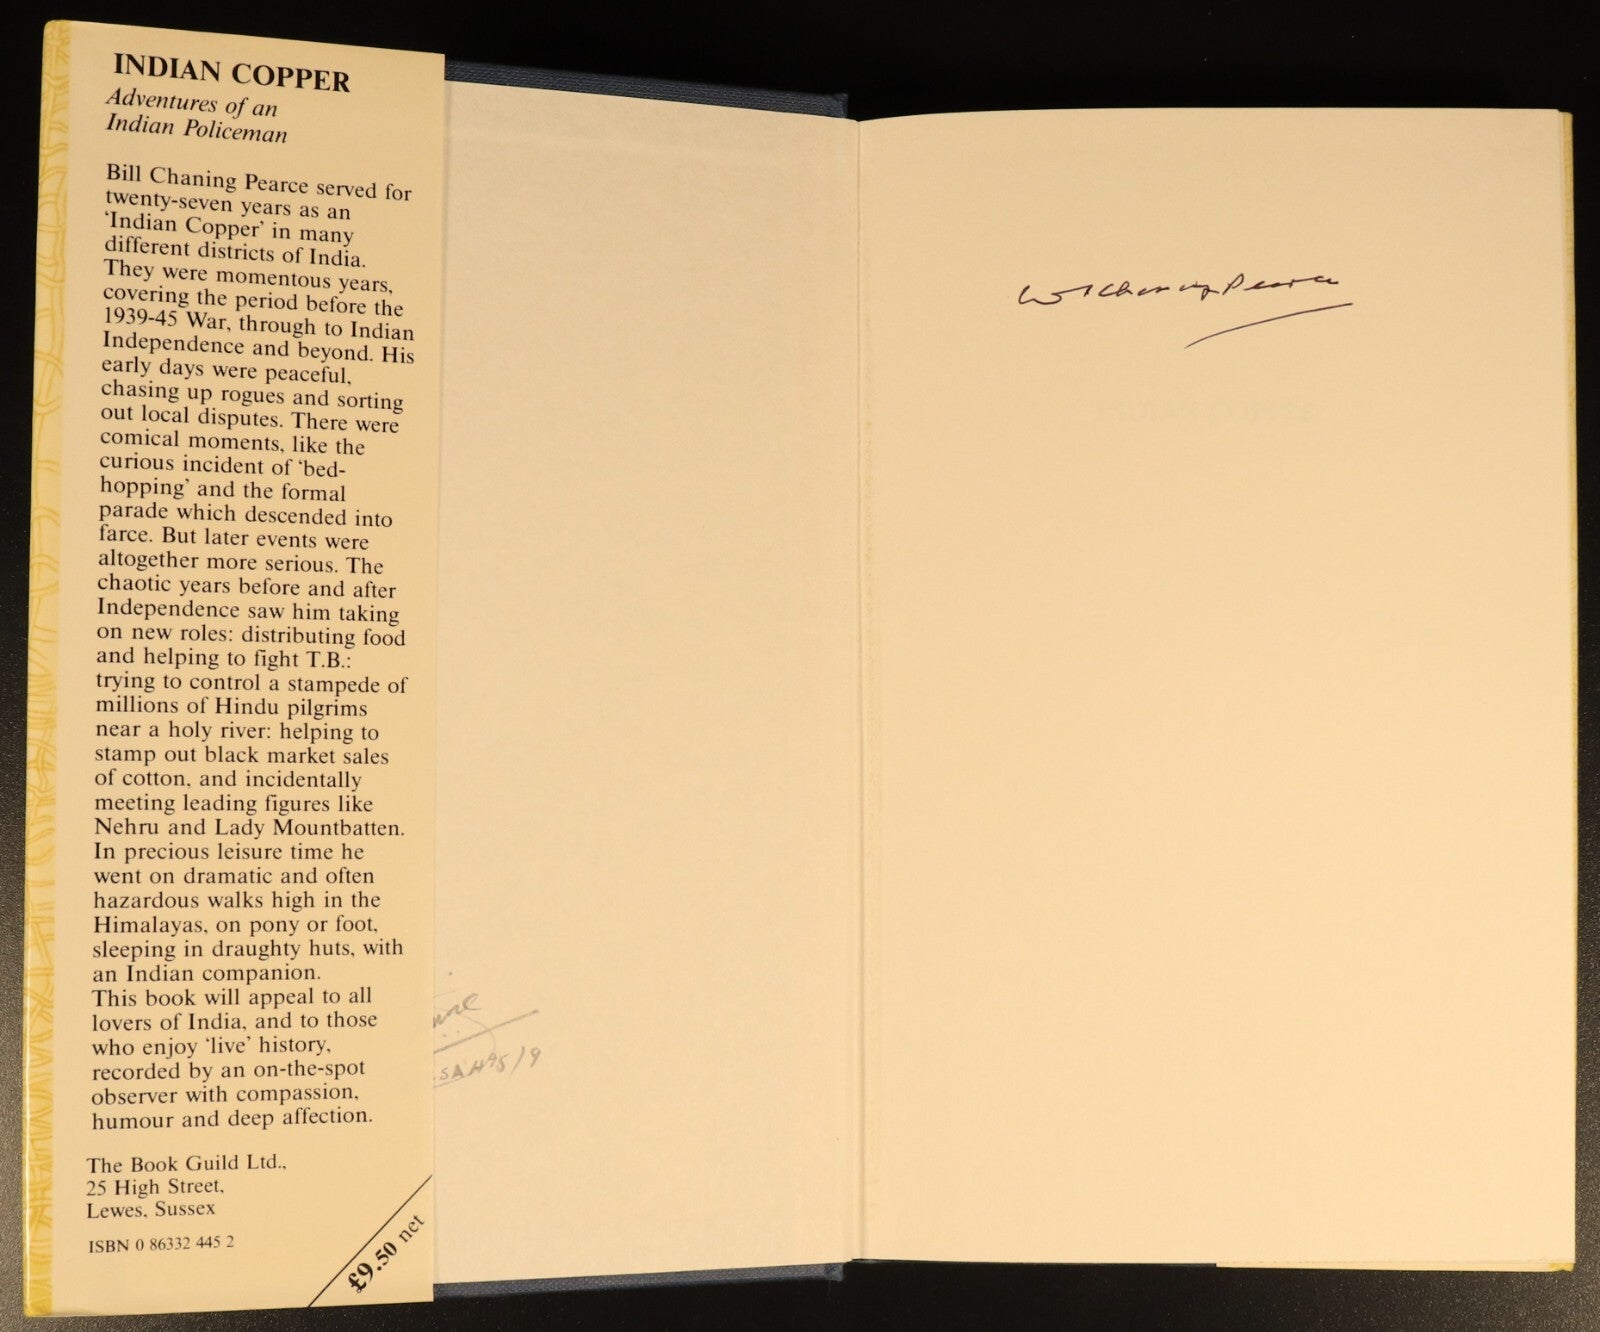 INDIAN COPPER
Adventures of an
Indian Policeman
Bill Chaning Pearce served for
twenty-seven years as an
‘Indian Copper’ in many
different districts of India.
They were momentous years,
covering the period before the
1939-45 War, through to Indian
Independence and beyond. His
early days were peaceful,
chasing up rogues and sorting
out local disputes. There were
comical moments, like the
curious incident of ‘bed-
hopping’ and the formal
parade which descended into
farce. But later events were
altogether more serious. The
chaotic years before and after
Independence saw him taking
on new roles: distributing food
and helping to fight T.B.:
trying to control a stampede of
millions of Hindu pilgrims
near a holy river: helping to
stamp out black market sales
of cotton, and incidentally
meeting leading figures like
Nehru and Lady Mountbatten.
In precious leisure time he
went on dramatic and often
hazardous walks high in the
Himalayas, on pony or foot,
sleeping in draughty huts, with
an Indian companion.
This book will appeal to all
lovers of India, and to those
who enjoy ‘live’ history,
recorded by an on-the-spot
observer with compassion,
humour and deep affection.
The Book Guild Ltd.,
25 High Street,
Lewes, Sussex
ISBN 0 86332 445 2
£9.50 net
Chaning Pearce